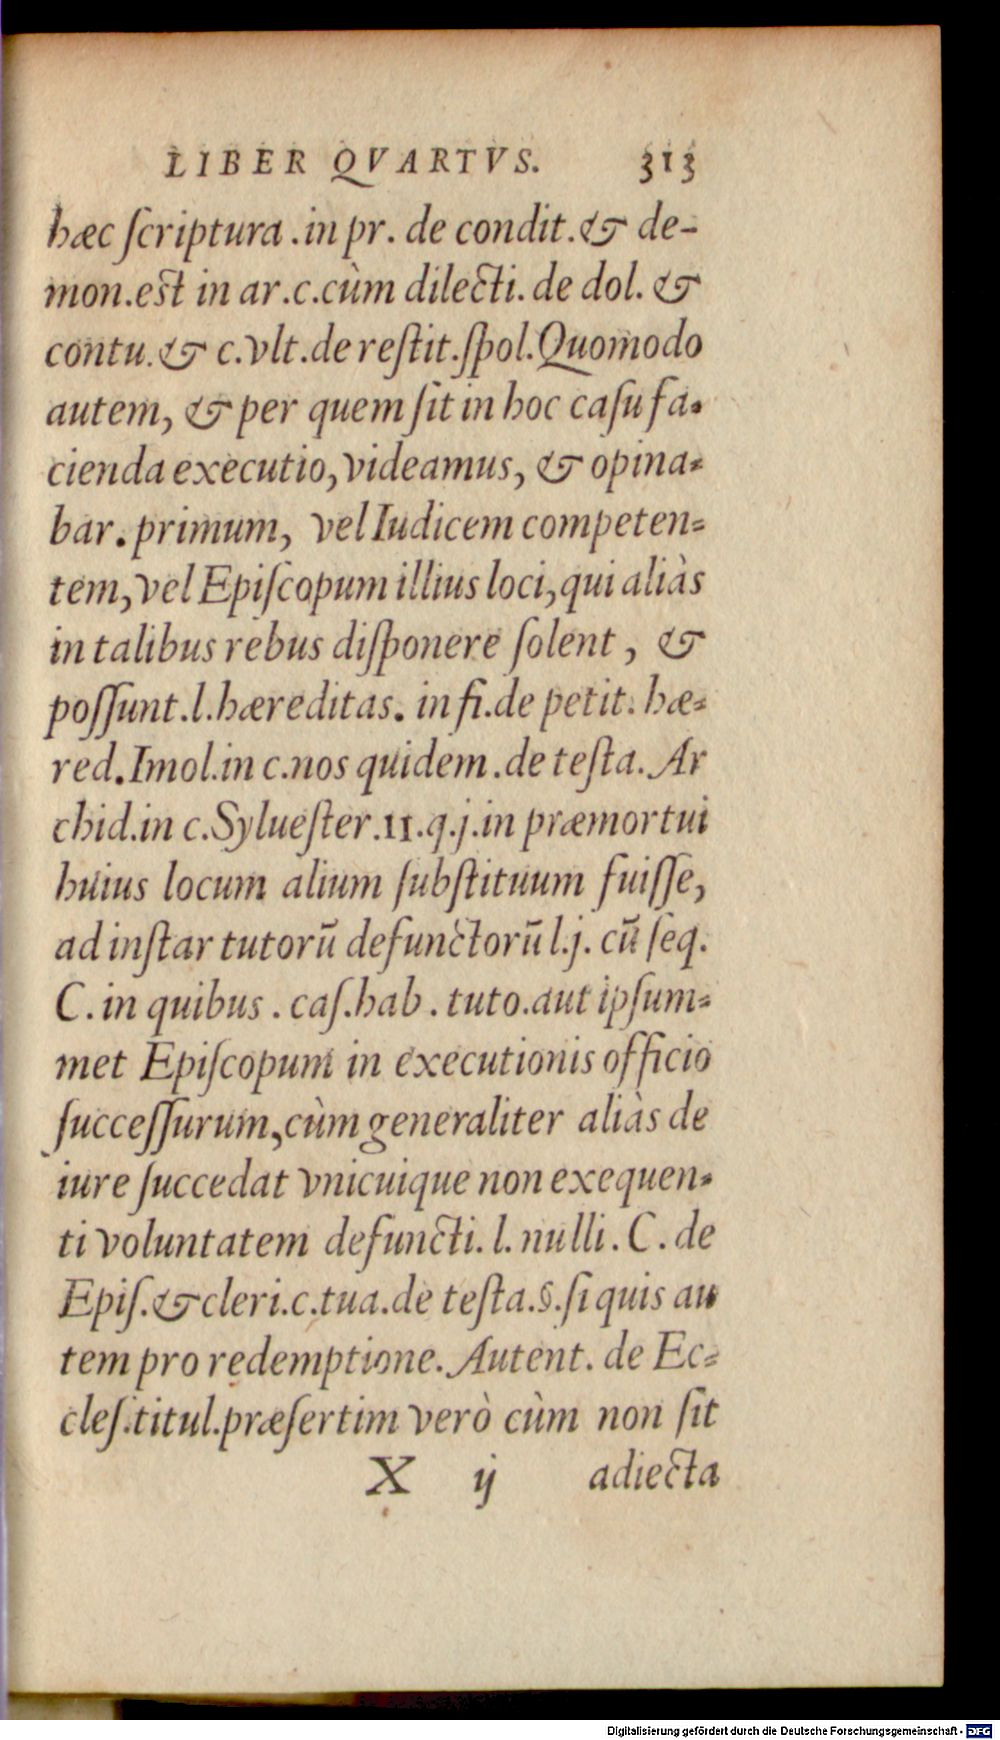 LIBER QVARTVS. 313
hæc ſcriptura .in pr. de condit.& de-
mon.est in ar.c.cùm dilecti. de dol. &
contu.& c.vlt.de reſtit.ſpol.Quomodo
autem, & per quem ſit in hoc caſu fa-
cienda executio,videamus, & opina-
bar. primum, vel Iudicem competen-
tem,vel Epiſcopum illius loci,qui aliàs
in talibus rebus diſponere ſolent , &
poſſunt.l.hæreditas. in fi.de petit. hæ-
red.Imol.in c.nos quidem .de teſta. Ar
chid.in c.Sylueſter.11.q.j.in præmortui
huius locum alium ſubſtituum fuiſſe,
ad inſtar tutorū defunctorū l.j. cū ſeq.
C. in quibus . caſ.hab . tuto.aut ipſum-
met Epiſcopum in executionis officio
ſucceſſurum,cùm generaliter aliàs de
iure ſuccedat vnicuique non exequen-
ti voluntatem defuncti. l. nulli . C. de
Epiſ.& cleri.c.tua.de teſta.§.ſi quis au
tem pro redemptione. Autent. de Ec-
cleſ.titul.præſertim verò cùm non ſit
X ij adiecta
Digitalisierung gefördert durch die Deutsche Forschungsgemeinschaft - DFG